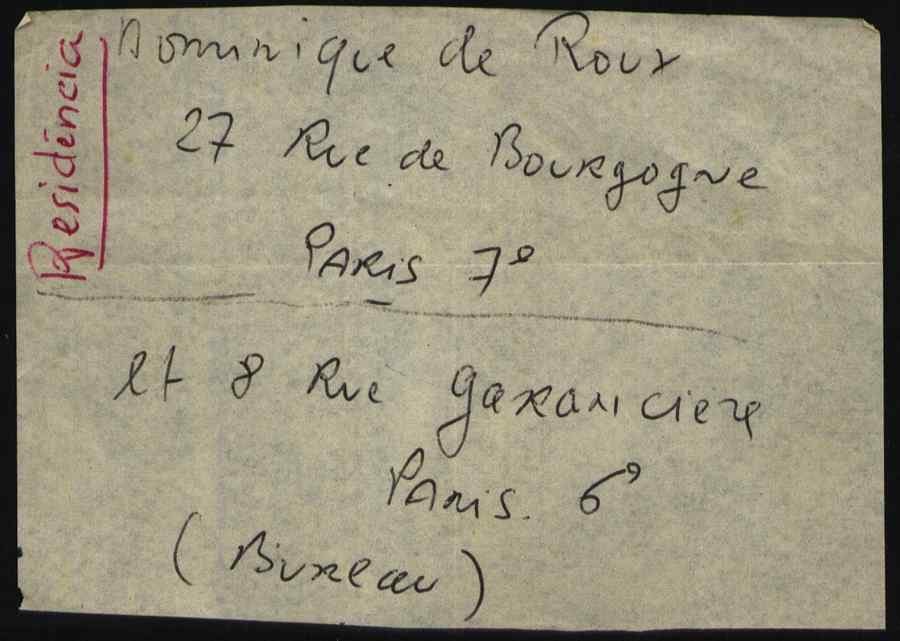 Residência
Dominique de Roux
27 Rue de Bourgogne
PARIS 7e
et 8 Rue garanciere
PARIS. 6e
(Bureau)